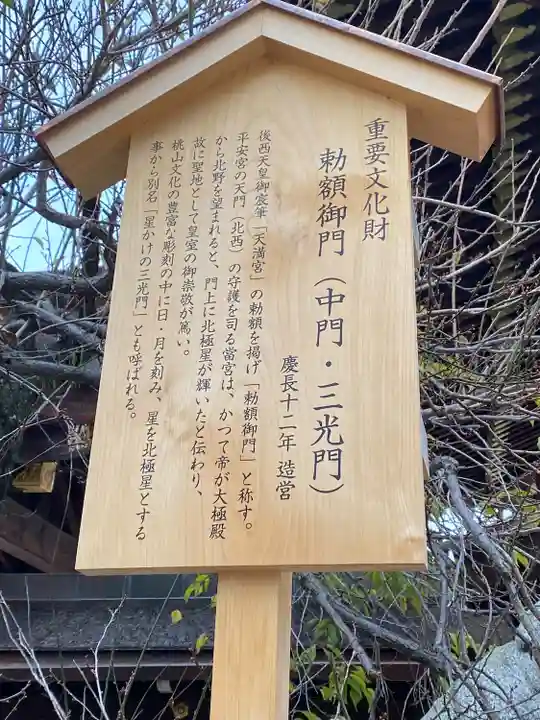 重要文化財
勅額御門（中門・三光門）
慶長十二年 造営
後西天皇御宸筆「天満宮」の勅額を掲げ「勅額御門」と称す。
平安宮の天門（北西）の守護を司る當宮は、かつて帝が大極殿
から北野を望まれると、門上に北極星が輝いたと伝わり、
故に聖地として皇室の御崇敬が篤い。
桃山文化の豊富な彫刻の中に日・月を刻み、星を北極星とする
事から別名「星かけの三光門」とも呼ばれる。